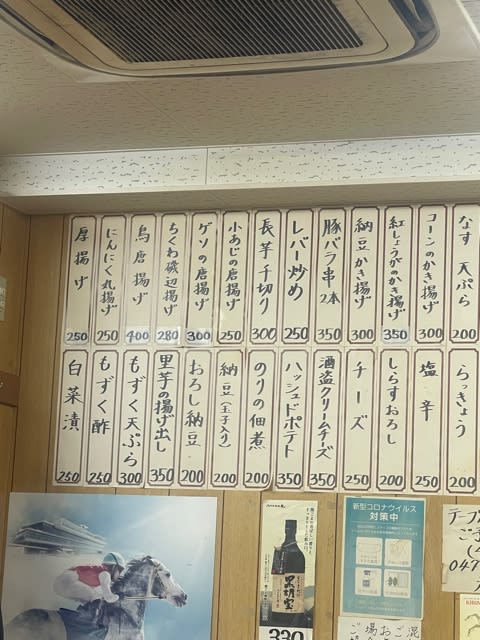 なす天ぷら 200
コーンのかき揚げ 300
紅しょうがのかき揚げ 350
納豆かき揚げ 300
豚バラ串 2本 350
レバー炒め 250
長芋千切り 300
小あじの唐揚げ 250
ゲソの唐揚げ 300
ちくわ磯辺揚げ 280
鳥唐揚げ 400
にんにく丸揚げ 250
厚揚げ 250
らっきょう 200
塩辛 250
しらすおろし 200
チーズ 250
酒盗クリームチーズ 350
ハッシュドポテト 350
のりの佃煮 200
納豆(玉子入り) 200
おろし納豆 200
里芋の揚げ出し 350
もずく天ぷら 300
もずく酢 250
白菜漬 250
黒胡宝
330
新型コロナウイルス
対策中
テーブ
ご予
047
ご場おご混
KIRIN